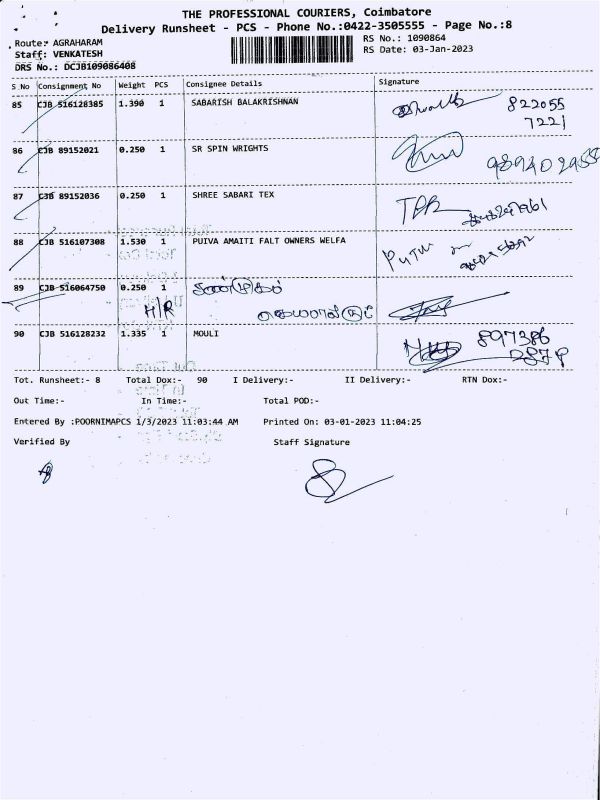 THE PROFESSIONAL COURIERS, Coimbatore
Delivery Runsheet - PCS - Phone No.:0422-3505555 - Page No.:8
Route: AGRAHARAM
RS No.: 1090864
Staff: VENKATESH
RS Date: 03-Jan-2023
DRS No.: DCJB109086408
S No Consignment No Weight PCS Consignee Details Signature
85 CJB 516128385 1.390 1 SABARISH BALAKRISHNAN 822055
7221
86 CJB 89152021 0.250 1 SR SPIN WRIGHTS
87 CJB 89152036 0.250 1 SHREE SABARI TEX
88 CJB 516107308 1.530 1 PUIVA AMAITI FALT OWNERS WELFA
89 CJB 516064750 0.250 1
H/R
90 CJB 516128232 1.335 1 MOULI 897386
Tot. Runsheet:- 8 Total Dox:- 90 I Delivery:- II Delivery:- RTN Dox:-
Out Time:- In Time:- Total POD:-
Entered By :POORNIMAPCS 1/3/2023 11:03:44 AM Printed On: 03-01-2023 11:04:25
Verified By Staff Signature